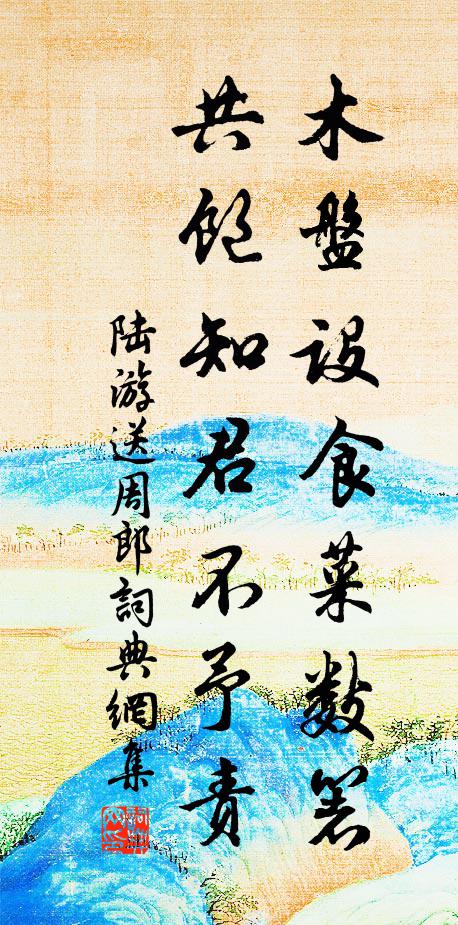 木盤設食菜數箸
共飽知君不予責
陸游送周郎詞典網集